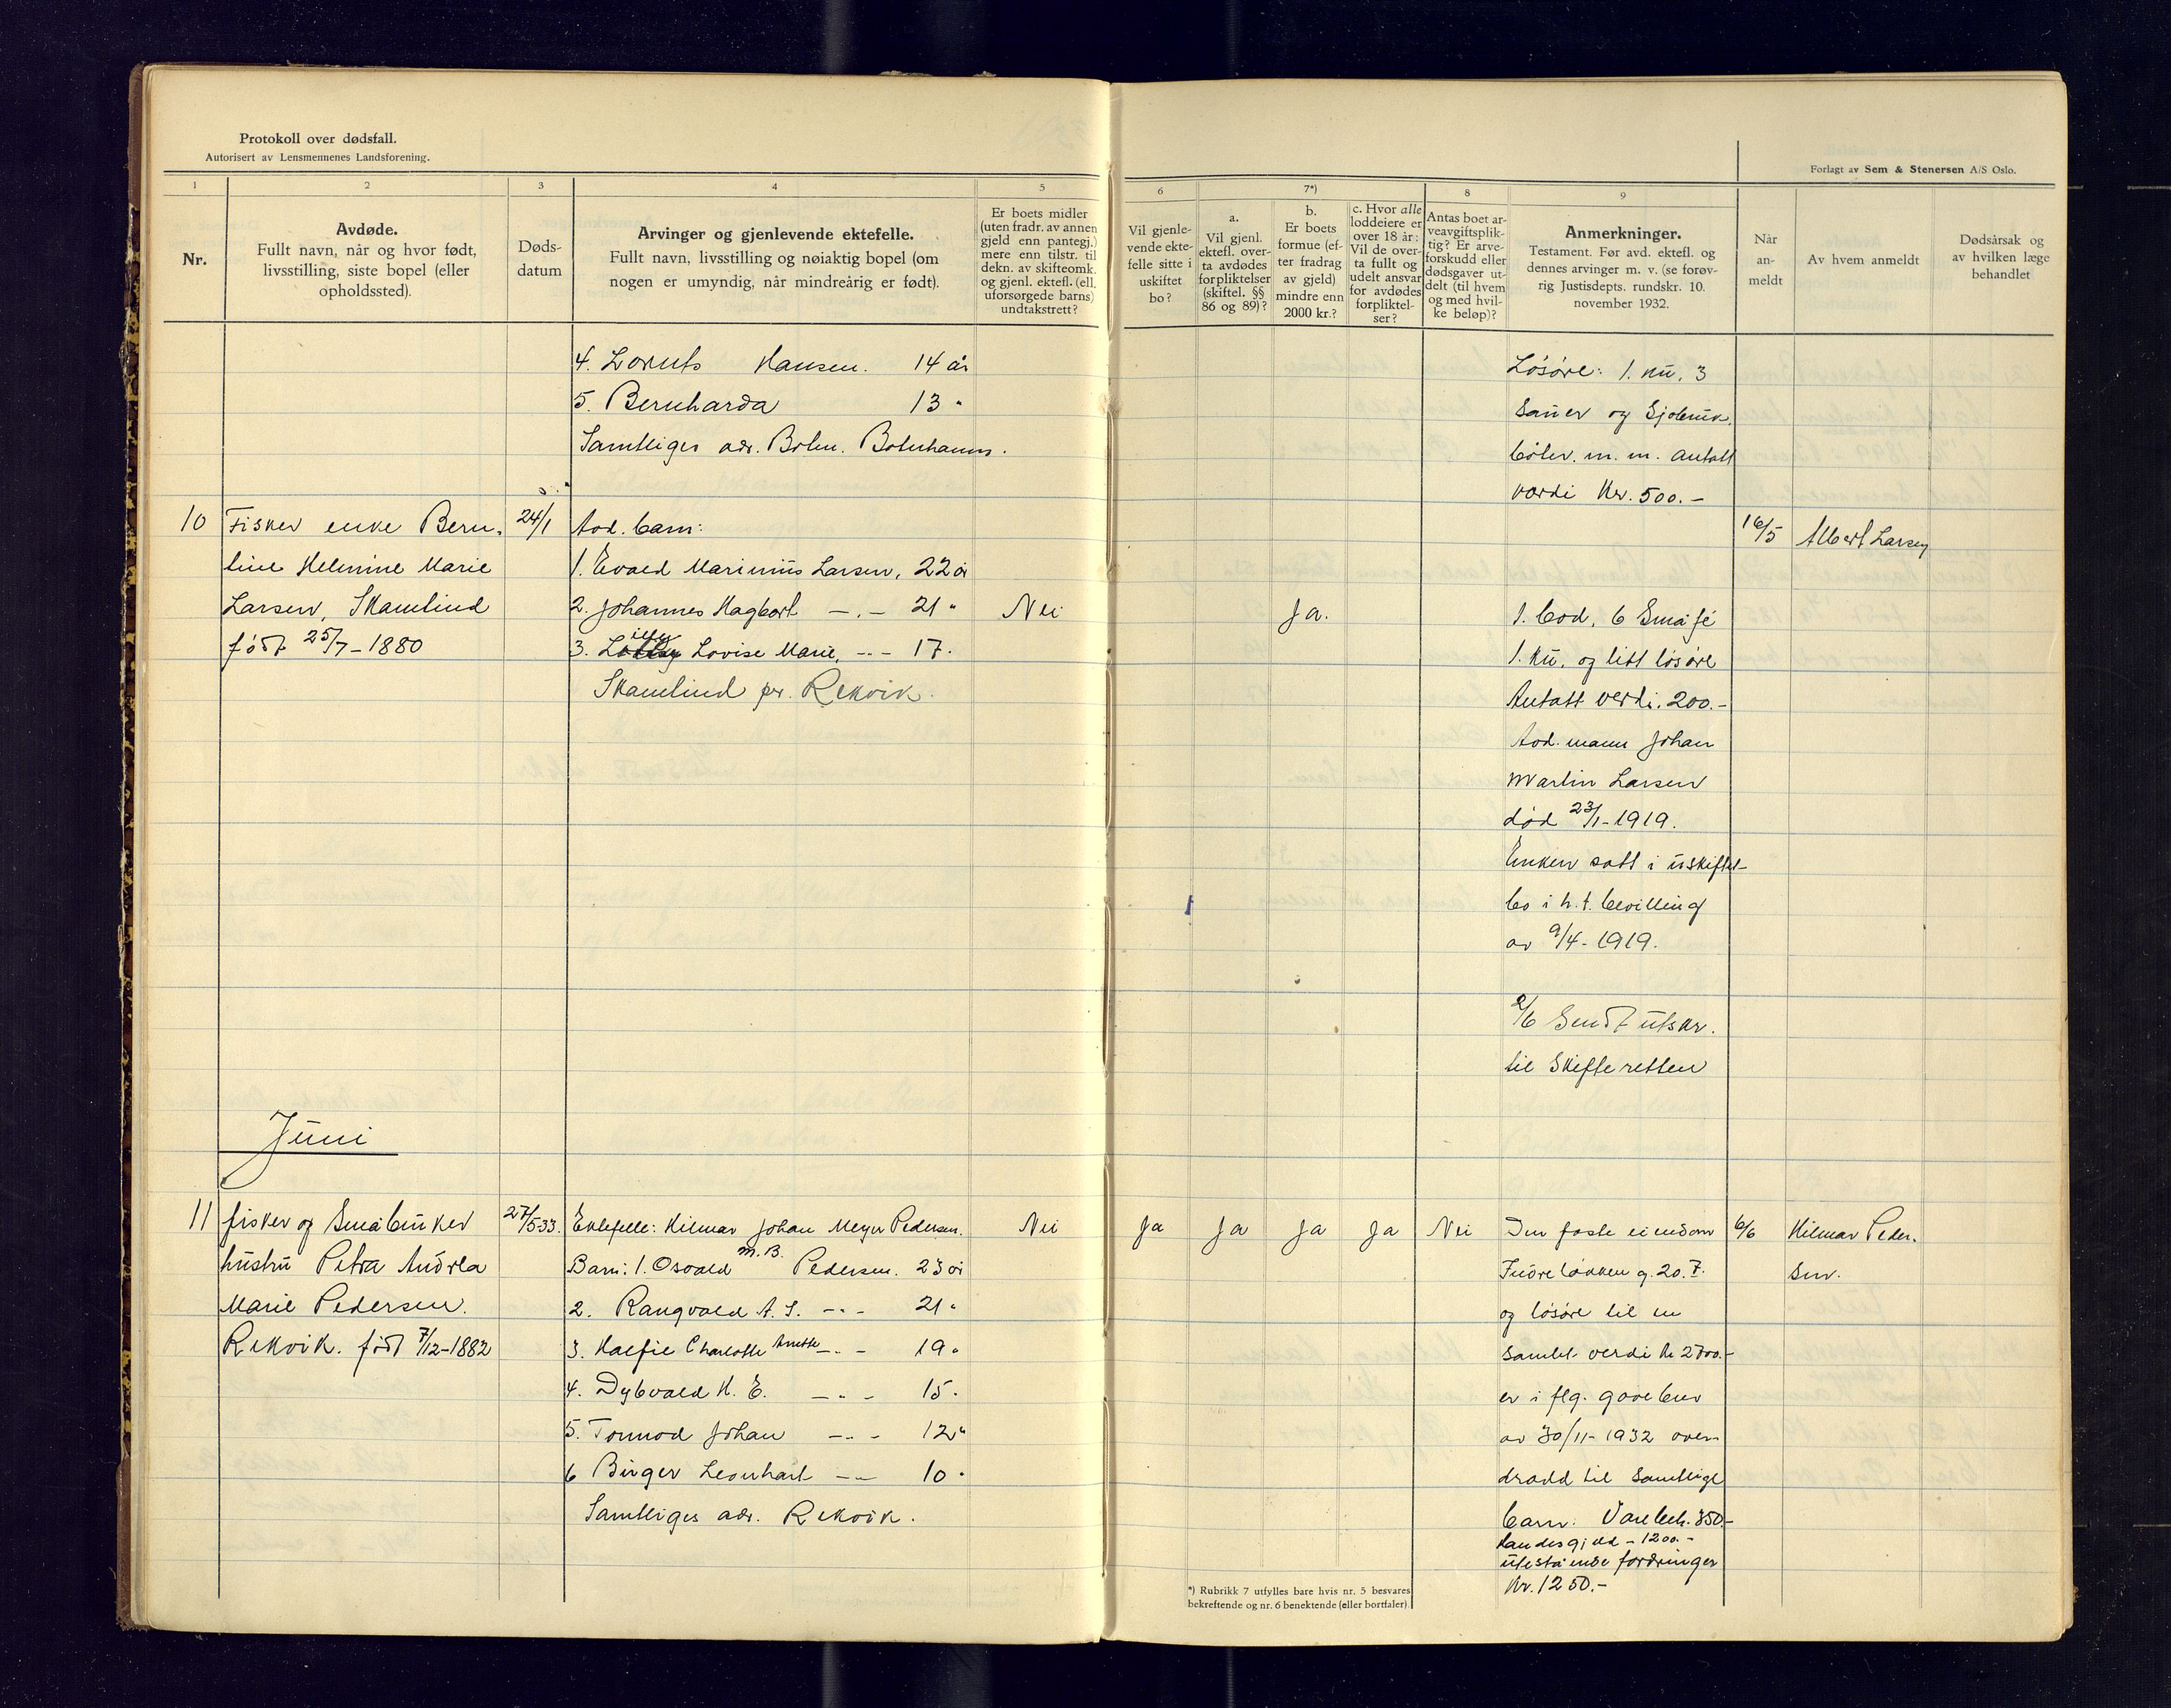 Protokoll over dødsfall.
Autorisert av Lensmennenes Landsforening.
Forlagt av Sem & Stenersen A/S Oslo.
1
2
3
4
5
6
7*)
8
9
Nr.
Avdøde.
Fullt navn, når og hvor født,
livsstilling, siste bopel (eller
opholdssted).
Døds-
datum
Arvinger og gjenlevende ektefelle.
Fullt navn, livsstilling og nøiaktig bopel (om
nogen er umyndig, når mindreårig er født).
Er boets midler
(uten fradr. av annen
gjeld enn pantegj.)
mere enn tilstr. til
dekn. av skifteomk.
og gjenl. ektefl. (ell.
uforsørgede barns)
undtakstrett?
Vil gjenle-
vende ekte-
felle sitte i
uskiftet
bo?
a.
Vil gjenl.
ektefl. over-
ta avdødes
forpliktelser
(skiftel. §§
86 og 89)?
b.
Er boets
formue (ef-
ter fradrag
av gjeld)
mindre enn
2000 kr.?
c. Hvor alle
loddeiere er
over 18 år:
Vil de over-
ta fullt og
udelt ansvar
for avdødes
forpliktel-
ser?
Antas boet ar-
veavgiftsplik-
tig? Er arve-
forskudd eller
dødsgaver ut-
delt (til hvem
og med hvil-
ke beløp)?
Anmerkninger.
Testament. Før avd. ektefl. og
dennes arvinger m. v. (se forøv-
rig Justisdepts. rundskr. 10.
november 1932.
Når
an-
meldt
Av hvem anmeldt
Dødsårsak og
av hvilken læge
behandlet
4. Lorents Hansen. 14 år
5. Bernharda 13 "
Samtliges adr. Botn. Botnhamn.
Løsøre: 1. ku. 3
Sauer og Sjøbruk.
båter. m. m. antatt
verdi Kr. 500.-
10
Fisker enke Bern-
tine Helmine Marie
Larsen, Skamlind
født 25/7-1880
24/1
Avd. barn:
1. Evald Marinius Larsen, 22 år
2. Johannes Hagbart -.- 21 "
3. Lilly Lovise Marie, -..- 17.
Skamlind pr. Rekvik.
Nei
Ja.
1. bod, 6 Småfé
1. ku, og litt løsøre
Antatt verdi. 200.-
Avd. mann Johan
Martin Larsen
død 23/1-1919.
Enken satt i uskiftet
bo i h. t. bevilling
av 9/4-1919.
2/6 Sendt utskr.
til Skifteretten
16/5
Albert Larsen
Juni
11
fisker og Småbruker
hustru Petra Andrea
Marie Pedersen.
Rekvik. født 7/12-1882
27/5-33.
Ektefelle: Hilmar Johan Meyer Pedersen.
Barn: 1. Osvald M.B. Pedersen. 23 år
2. Rangvald A. S. -..- 21 "
3. Halfie Charlotte Anette -..- 19 "
4. Dybvald H. E. -..- 15.
5. Tormod Johan -..- 12 "
6 Birger Leonhart -..- 10 "
Samtliges adr. Rekvik.
Nei
Ja
Ja
Ja
Ja
Nei
Den faste eiendom
Indreløkken g. 20. 7.
og løsøre til en
samlet verdi kr 2700.-
er i flg. gavebrev
av 30/11-1932 over-
dradd til samtlige
barn. Varebeh. 350.-
Landesgjeld - 1200.-
utestående fordringer
Kr. 1250.-
6/6
Hilmar Peder-
sen.
*) Rubrikk 7 utfylles bare hvis nr. 5 besvares
bekreftende og nr. 6 benektende (eller bortfaler).